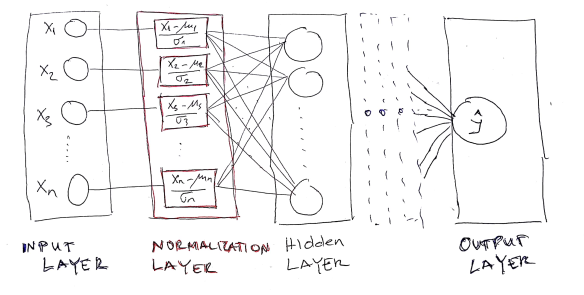 x₁
x₂
x₃
xₙ
x₁ - μ₁
σ₁
x₂ - μ₂
σ₂
x₃ - μ₃
σ₃
xₙ - μₙ
σₙ
ŷ
INPUT
LAYER
NORMALIZATION
LAYER
Hidden
LAYER
OUTPUT
LAYER